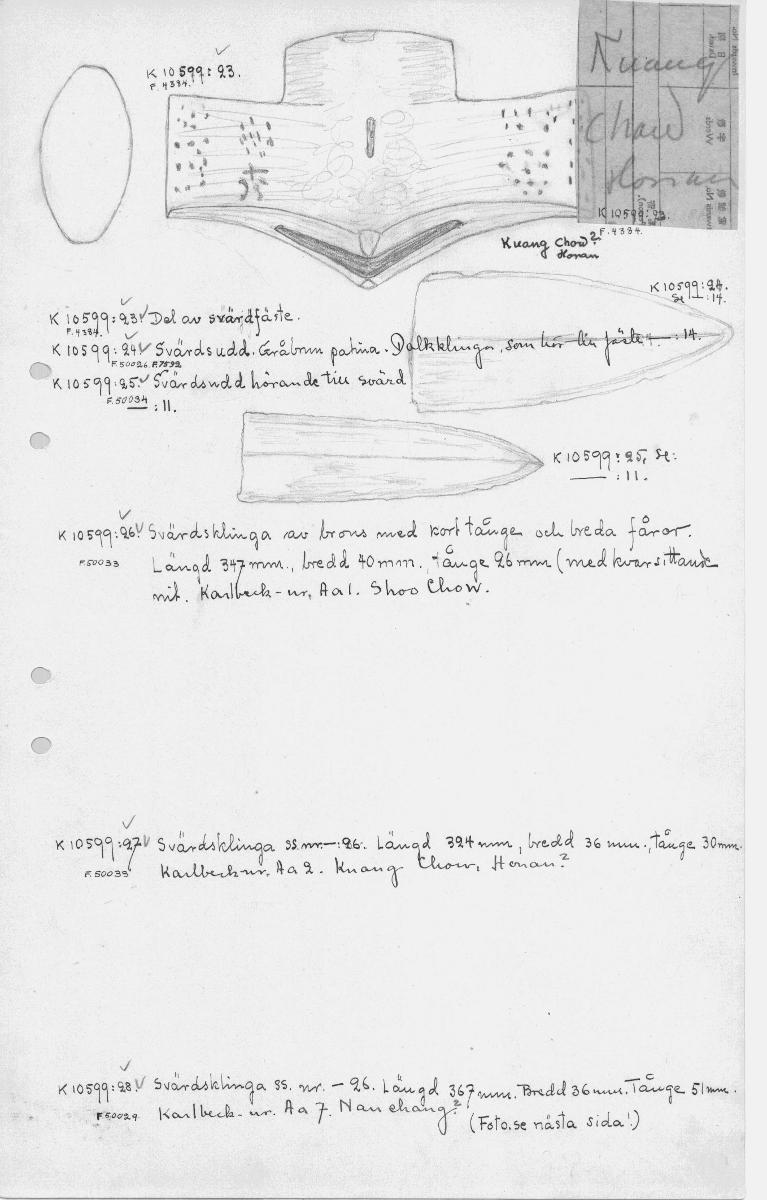 K 10599:23.
F.4384.
Kuang
Chow
Honan
K 10599:23.
F.4384.
Kuang Chow?
Honan
K 10599:24.
Se — :14.
K 10599:23 Del av svärdfäste.
F.4384.
K 10599:24 Svärdsudd. Gråbrun patina. Dolkklinga, som hör till fäste — :14.
F.50026. F.7592
K 10599:25. Svärdsudd hörande till svärd
F.50034 — :11.
K 10599:25, se:
— :11.
K 10599:26. Svärdsklinga av brons med kort tånge och breda fåror.
F.50033 Längd 347 mm., bredd 40 mm., tånge 26 mm (med kvarsittande
nit. Karlbeck-nr. Aa1. Shou Chow.
K 10599:27 Svärdsklinga ss. nr. —:26. Längd 324 mm, bredd 36 mm., tånge 30 mm.
F.50035 Karlbeck-nr. Aa 2. Kuang Chow, Honan?
K 10599:28. Svärdsklinga ss. nr. — 26. Längd 367 mm. Bredd 36 mm. Tånge 51 mm.
F.50029 Karlbeck-nr. Aa 7. Nanchang?
(Foto. se nästa sida!)